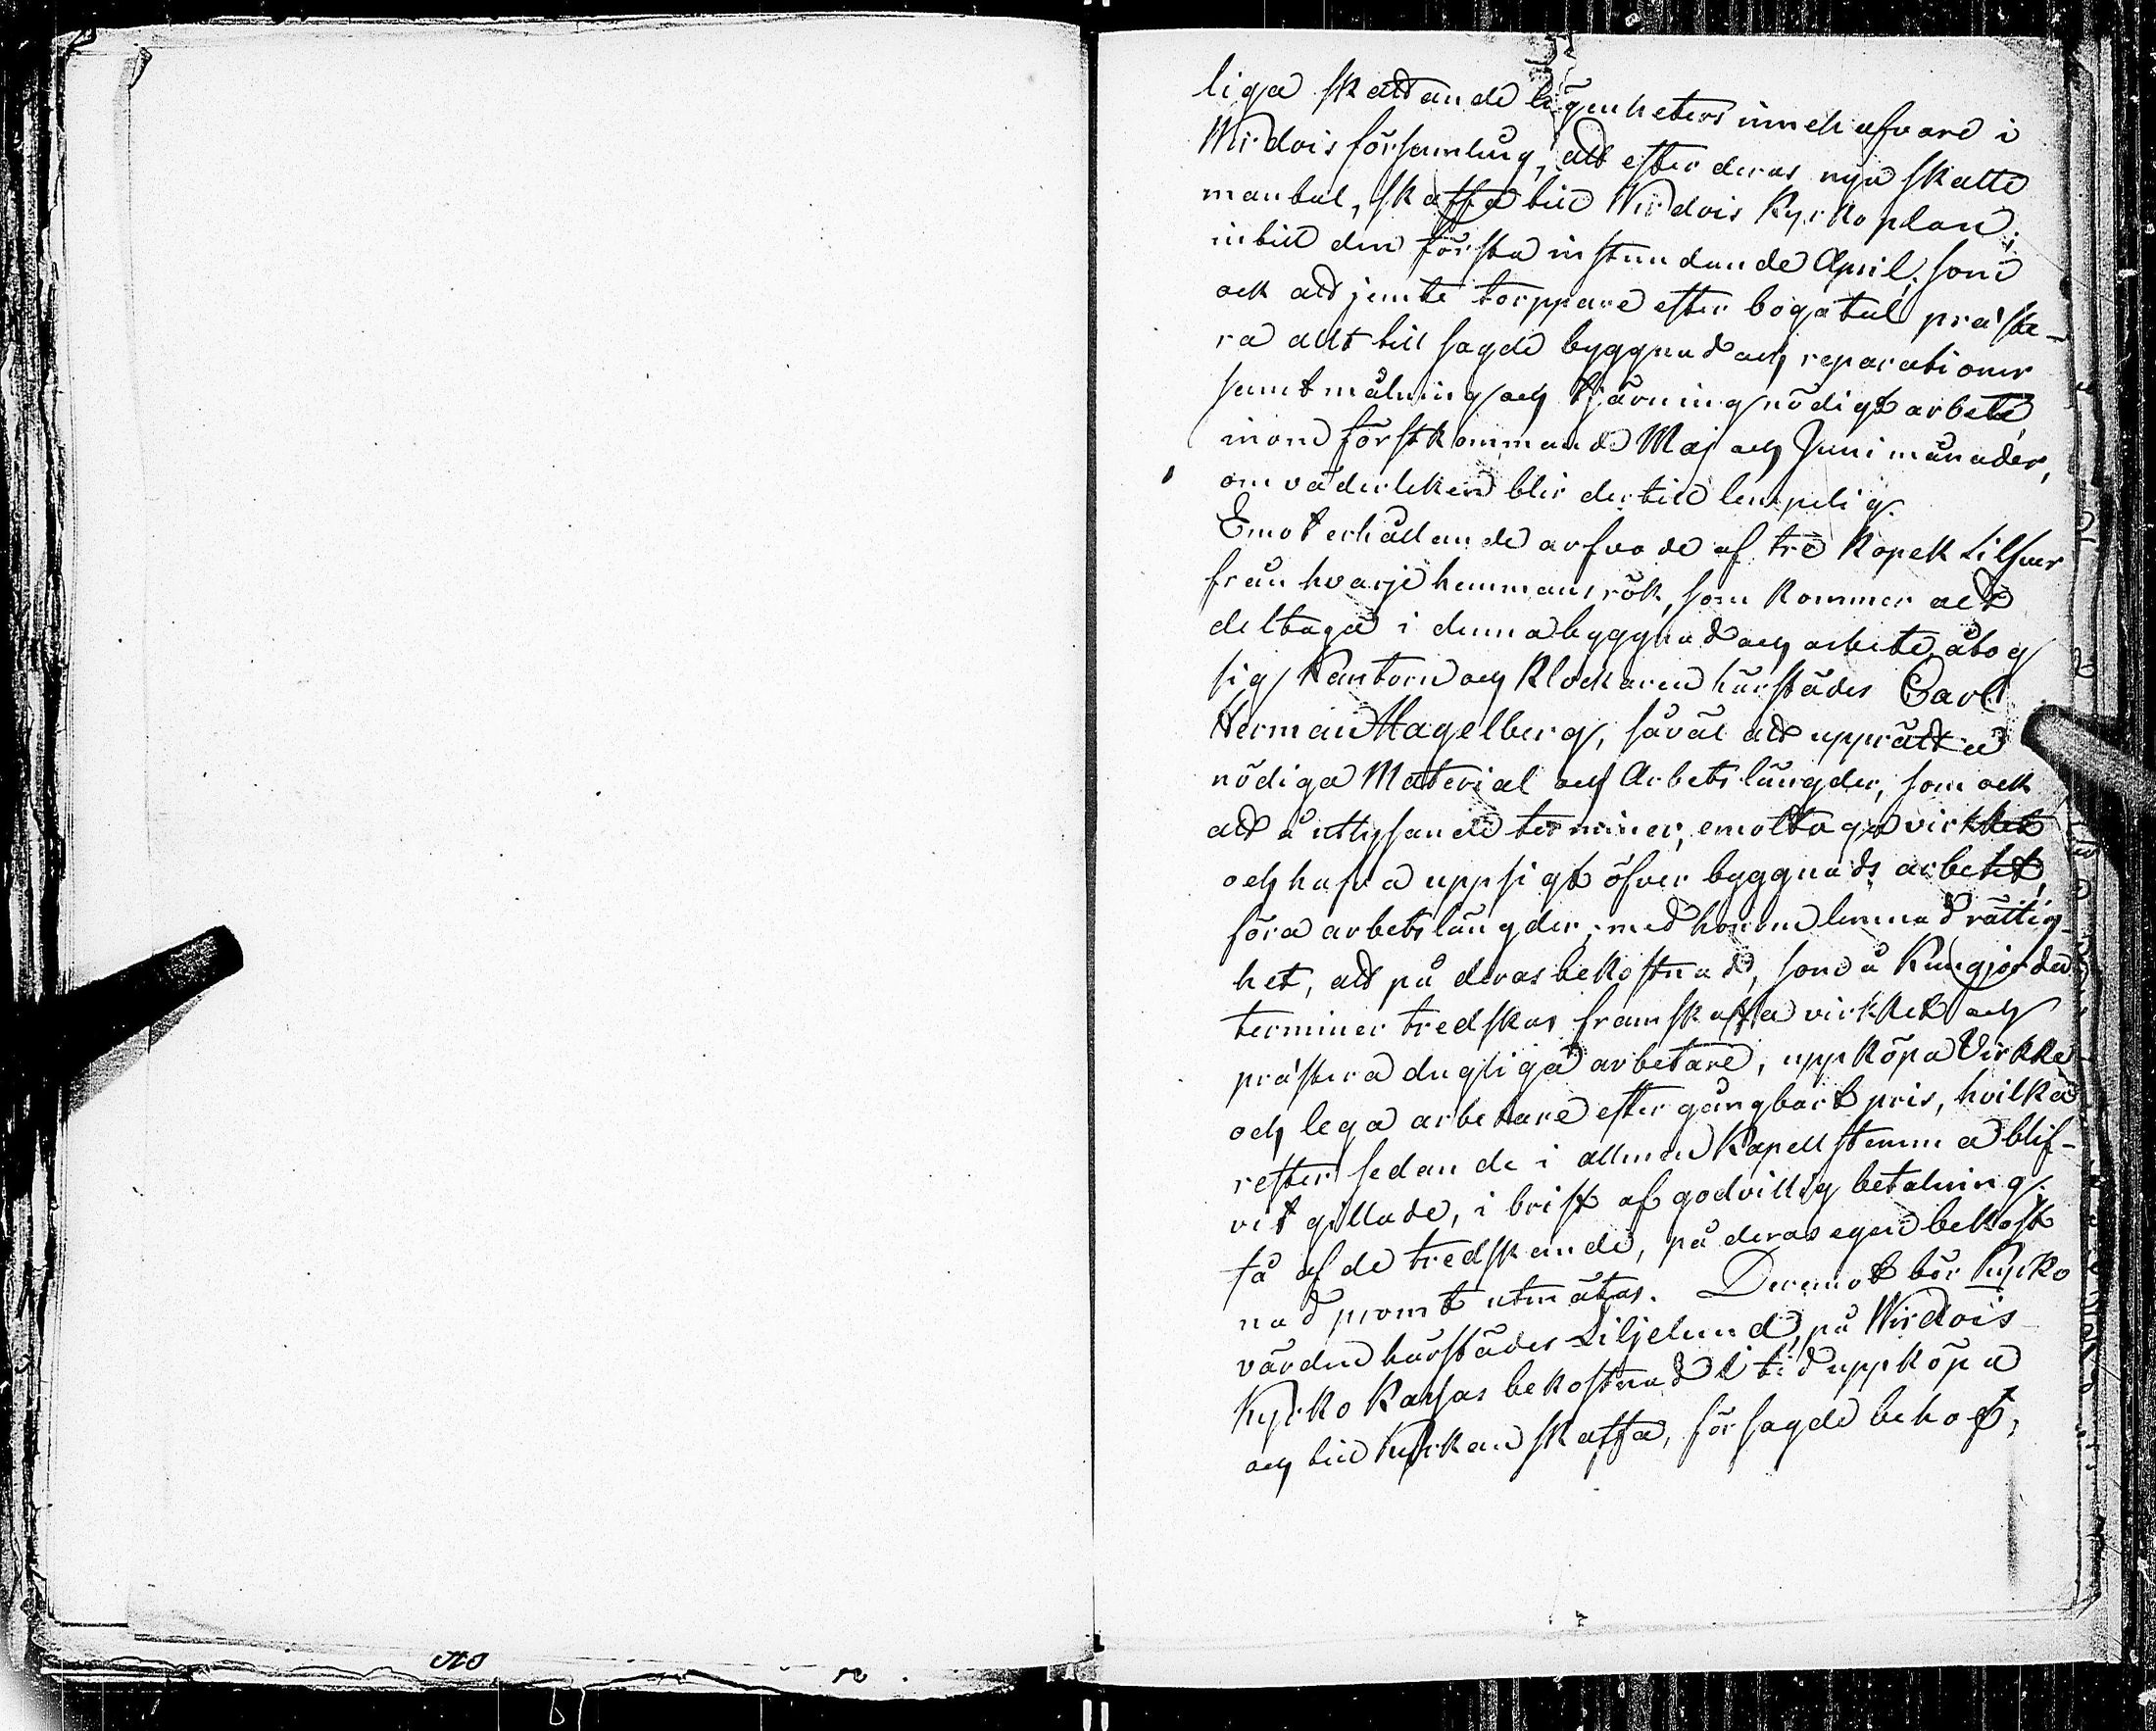 liga skattande lägenheters innehafvare i
Wirdois församling, att efter deras nya skatte
mantal, skaffa till Wirdois Kyrkoplan,
intill den första instundande April, som
ock att jemte torppare efter bogatal præste-
ra allt till sagde byggnad och reparationer
samt målning och tjärning nödigt arbete,
inom förstkommande Maj och Juni månader,
om väderleken blir dertill lempelig.
Emot erhållande arfvode af tre kopek Silfver
från hvarje hemmans rök, som kommer att
deltaga i denna byggnad och arbete, åtog
sig Kantorn och Klockaren härstädes Carl
Herman Hagelberg, såväl att upprätta
nödiga Material och Arbets längder, som ock
att å utlysande terminer, emottaga virkket
och hafva uppsigt öfver byggnads arbetet,
föra arbetslängder, med honom lemnad rättig-
het, att på deras bekostnad, som å kungjorda
terminer tredskas framskaffa virkket och
præstera dugliga arbetare, uppköpa Virkke
och lega arbetare efter gångbart pris, hvilka
rester sedan de i allmen Kapellstemma blif-
vit gillade, i brist af godvillig betalning,
få af de tredskande, på deras egen bekost
nad promt utmätas. Deremot bör Kyrko
värden härstädes Liljelund, på Wirdois
Kyrko Kassas bekostnad i tid uppköpa
och till Kyrkan skaffa, för sagde behof,